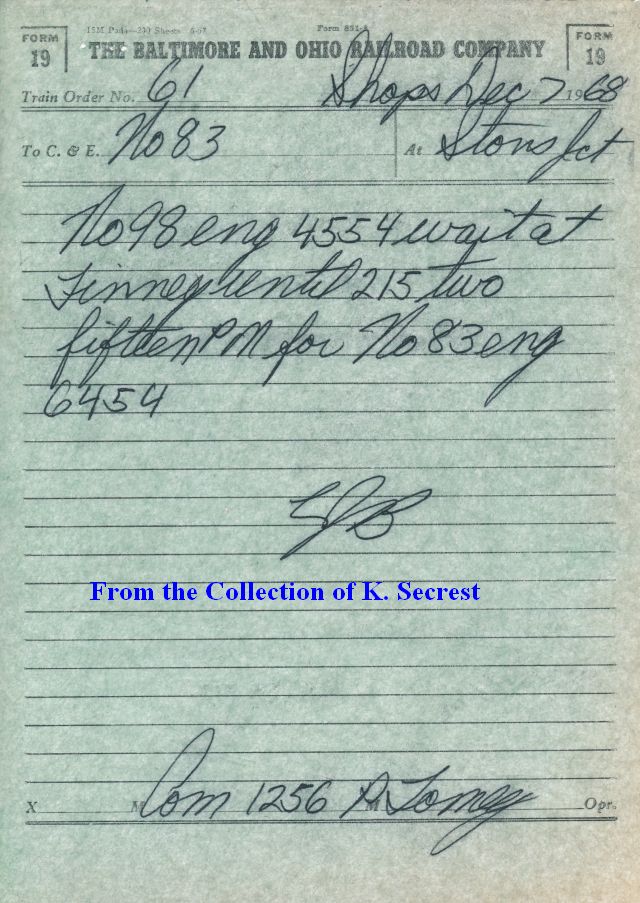 15M Pads—200 Sheets 5-67 Form 831-A
FORM 19 THE BALTIMORE AND OHIO RAILROAD COMPANY FORM 19
Train Order No. 61 Shops Dec 7 1968
To C. & E. No 83 At Stons Jct
No 98 eng 4554 wait at
Finney until 215 two
fifteen PM for No 83 eng
6454
From the Collection of K. Secrest
X M Com 1256 P M Opr.